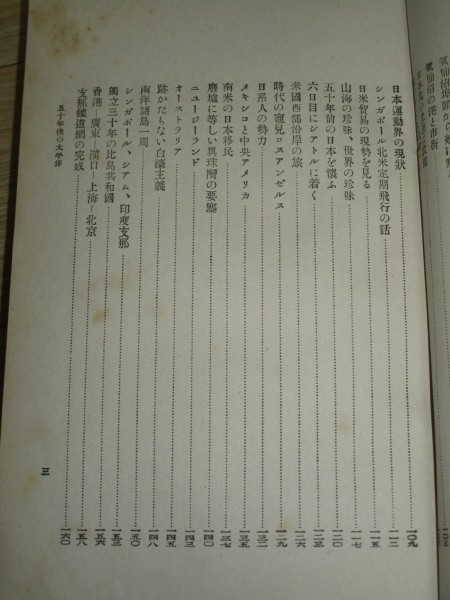 氣仙沼の港と市街
日本運動界の現狀……一〇九
シンガポール北米定期飛行の話……一一二
日米貿易の現勢を見る……一一五
山海の珍味、世界の珍味……一一七
五十年前の日本を懷ふ……一二〇
六日目にシアトルに着く……一二三
米國西部沿岸の旅……一二六
時代の寵兒ロスアンゼルス……一二九
日系人の勢力……一三二
メキシコと中央アメリカ……一三五
南米の日本移民……一三七
廢墟に等しい眞珠灣の要塞……一四〇
ニュージーランド……一四三
オーストラリア……一四五
跡かたもない白濠主義……一四八
南洋諸島一周……一五〇
シンガポール、シアム、印度支那
獨立三十年の比島共和國……一五三
香港—廣東—漢口—上海—北京……一五六
支那鐵道網の完成……一五八
一六〇
五十年後の太平洋
三